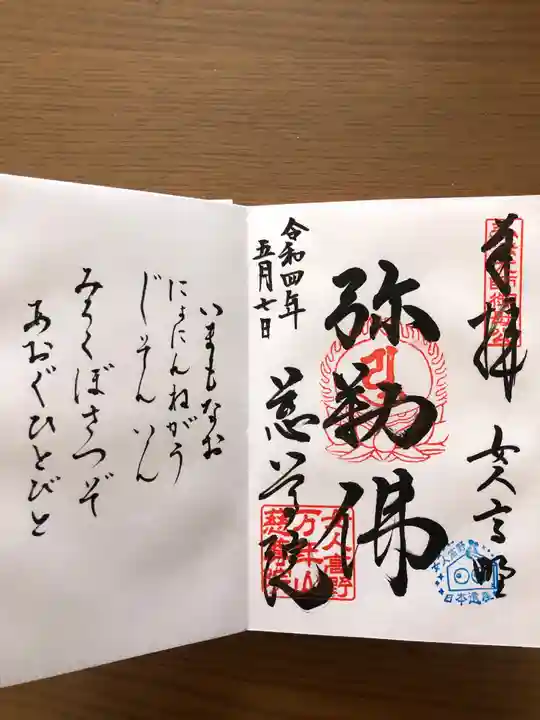 奉拝
女人高野
弥勒佛
慈尊院
令和四年
五月七日
女人高野
万年山
慈尊院
女人高野
日本遺産
いまもなお
にょにんねがう
じそんいん
みろくぼさつぞ
あおぐひとびと